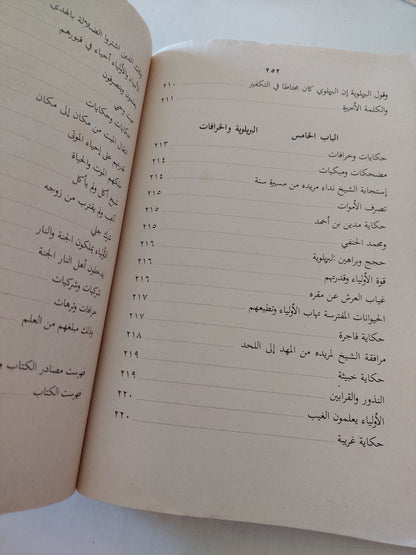 ٢٥٢
وقول البريلوية إن البريلوي كان محتاطا في التكفير ٢١٠
والكلمة الأخيرة ٢١١
الباب الخامس البريلوية والخرافات
حكايات وخرافات ٢١٣
مضحكات ومبكيات ٢١٤
إستجابة الشيخ نداء مريده من مسيرة سنة ٢١٤
تصرف الأموات ٢١٥
حكاية مدين بن أحمد ٢١٥
ومحمد الحنفي ٢١٥
حجج وبراهين البريلوية ٢١٦
قوة الأولياء وقدرتهم ٢١٦
غياب العرش عن مقره ٢١٦
الحيوانات المفترسة تهاب الأولياء وتطيعهم ٢١٧
حكاية فاجرة ٢١٧
مرافقة الشيخ لمريده من المهد إلى اللحد ٢١٨
حكاية خبيثة ٢١٩
النذور والقرابين ٢١٩
الأولياء يعلمون الغيب ٢٢٠
حكاية غريبة ٢٢٠
الذين اشتروا الضلالة بالهدى
والأولياء أحياء في قبورهم
ويتصرفون
ميت وحي
حكايات وحكايات
انتقال الميت من مكان إلى مكان
قدرتهم على إحياء الموتى
ملكهم الموت والحياة
شيخ أكل ولم يأكل
ولم يقترب من زوجه
شرك جلي
الأولياء يملكون الجنة والنار
يدخلون أهل النار الجنة
شركيات وشركيات
خرافات وترهات
وذلك مبلغهم من العلم
فهرست مصادر الكتاب
فهرست الكتاب